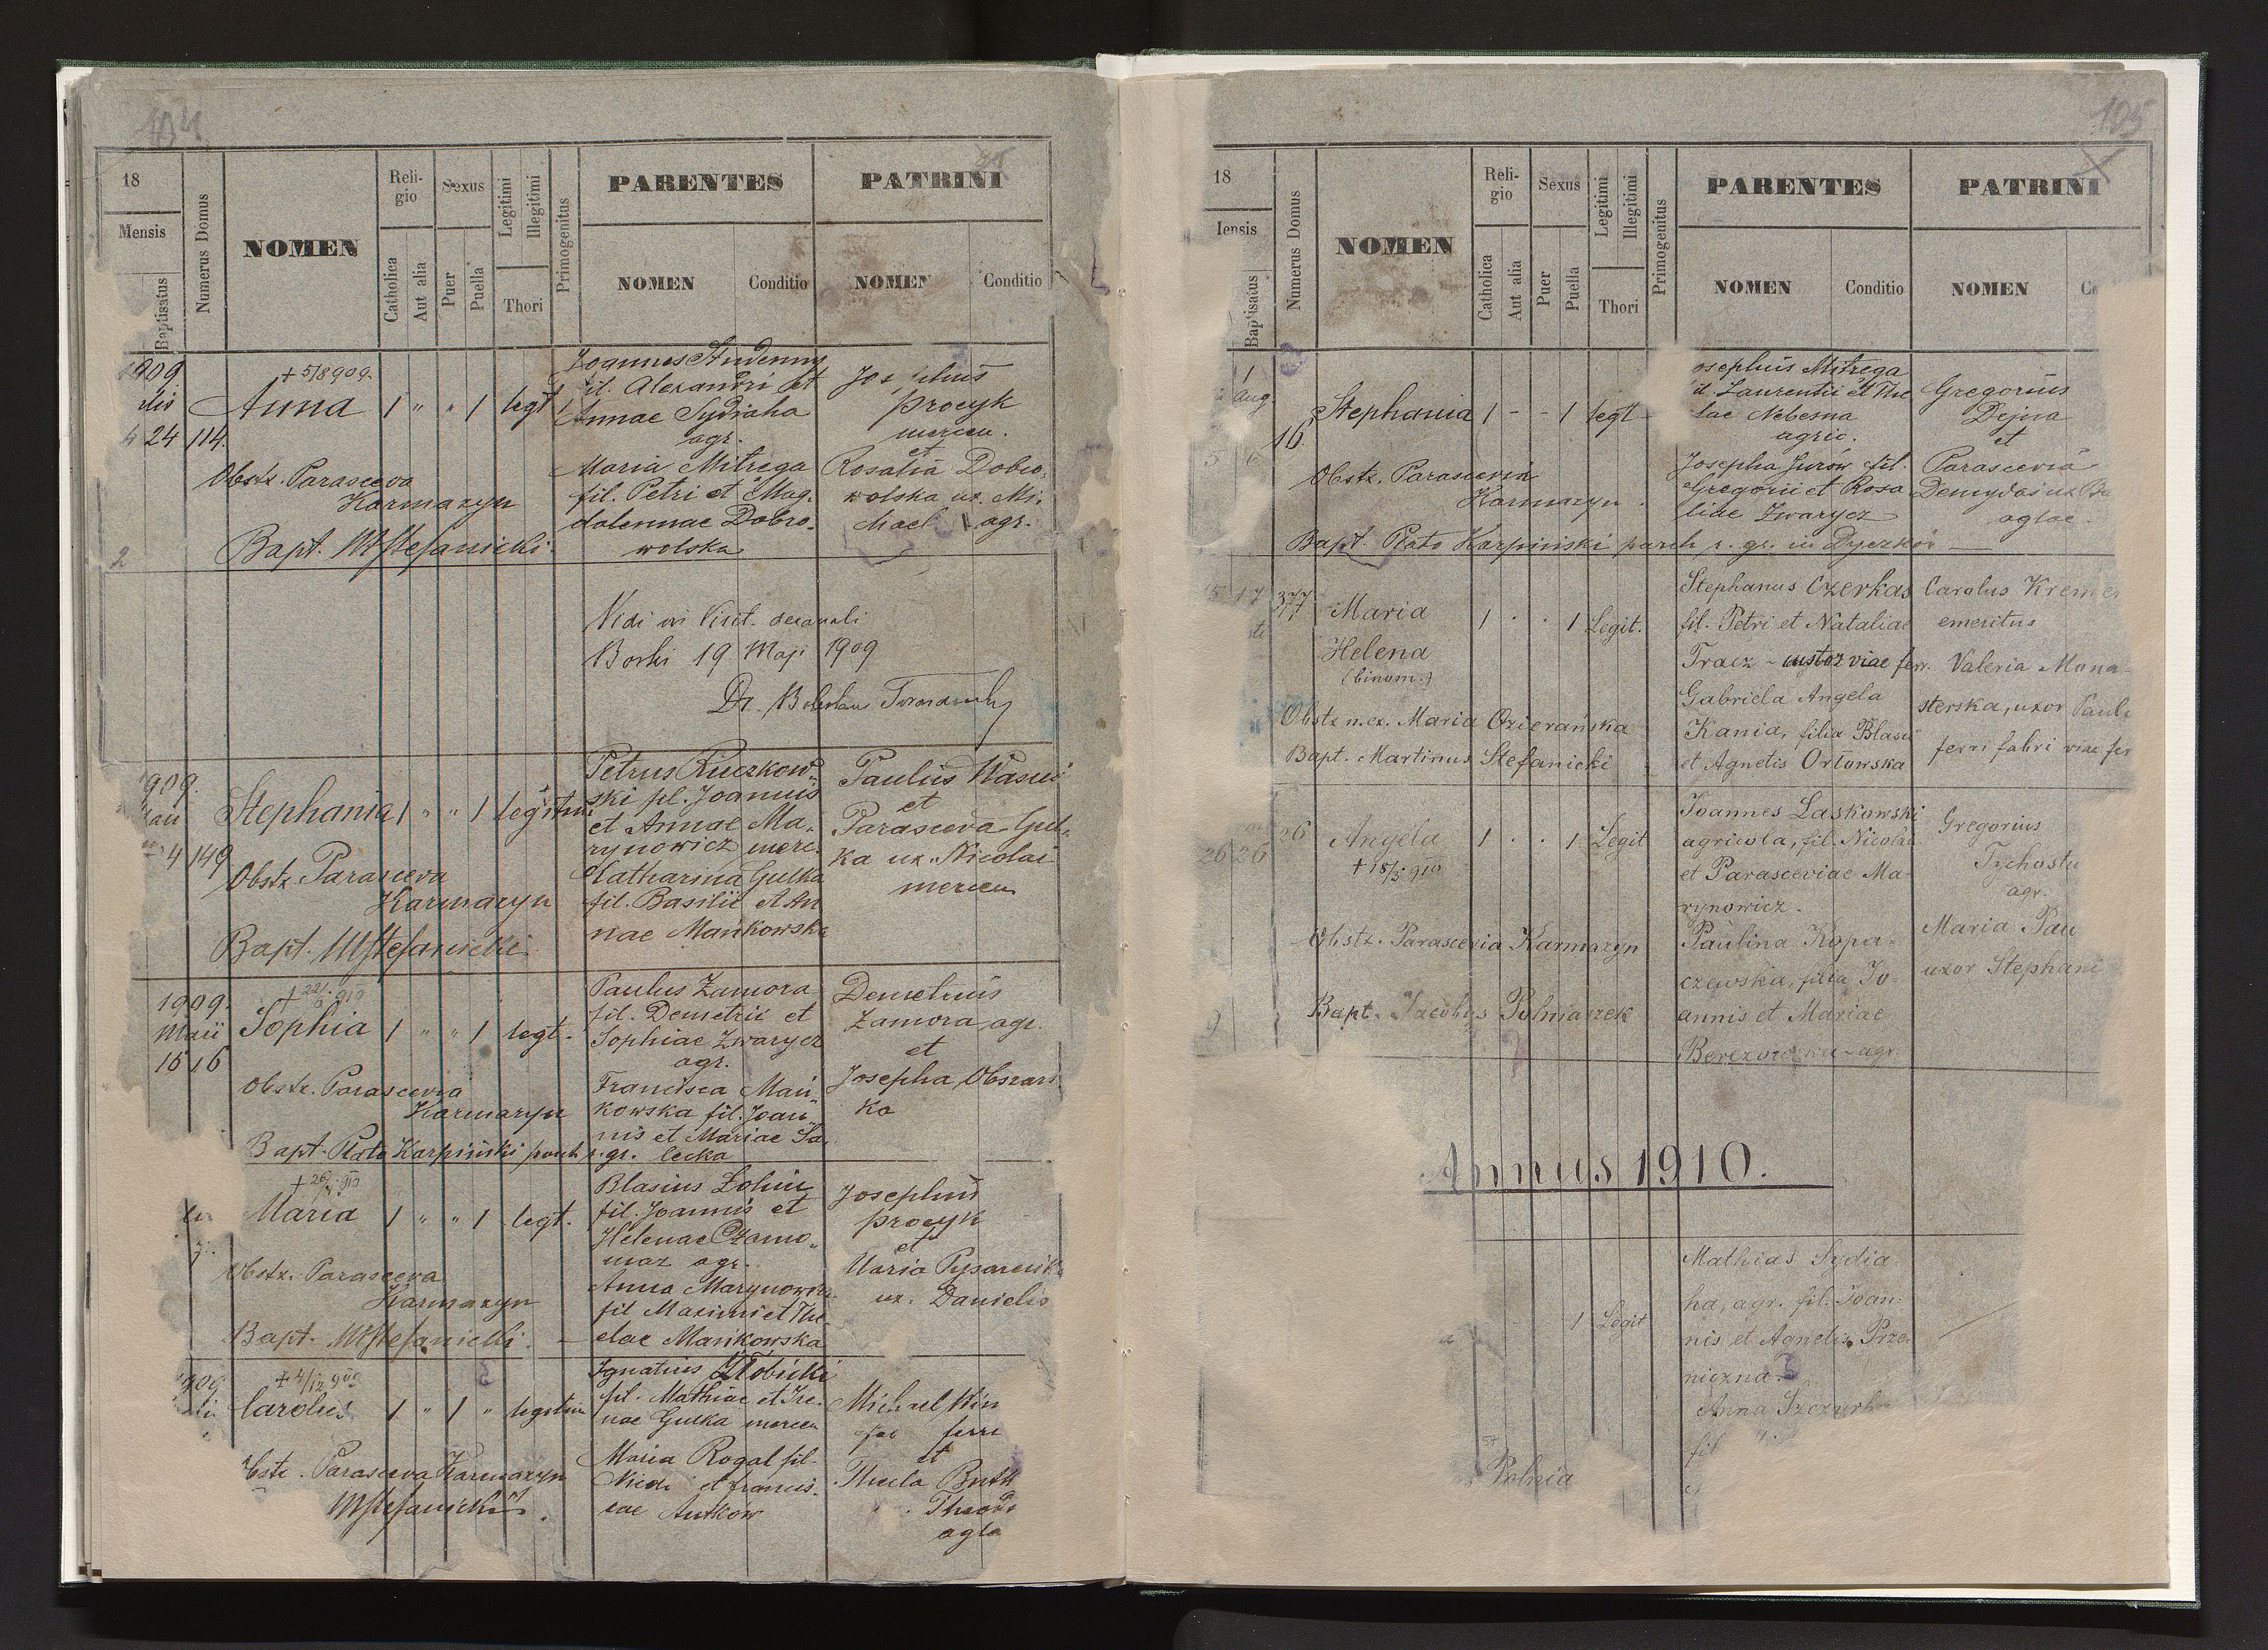 104
18
Mensis
Baptisatus
Numerus Domus
NOMEN
Reli-
gio
Catholica
Aut alia
Sexus
Puer
Puella
Legitimi
Illegitimi
Thori
Primogenitus
PARENTES
NOMEN
Conditio
PATRINI
NOMEN
Conditio
909
24 114.
+ 5/8 909.
Anna 1 " " 1 legt
Obstr. Parasceva
Karmazyn
Bapt. MStefanicki
Joannes Studenny
fil. Alexandri et
Annae Sydiaha
agr.
Maria Mitrega
fil. Petri et Mag-
dalennae Dobro-
wolska
procyk
mercen.
et
Rosalia Dobro-
wolska ux. Mi-
chael agr.
2
Vidi in Visit. decanali
Borki 19 Maji 1909
Dr.
909.
4 149
Stephania 1 " " 1 legitim
Obstr. Parasceva
Karmazyn
Bapt. MStefanicki
Petrus Ruczkow-
ski fil. Joannis
et Annae Ma-
rynowicz merc.
Catharina Gulka
fil. Basilii et An
nae Mańkowska
Paulus
et
Parasceva Gul-
ka ux. Nicolai
mercen
1909.
Maii
15 16
Sophia 1 " " 1 legt.
Obstr. Parascevia
Karmazyn
Bapt. Plato Karpiński paroch r. gr.
Paulus Zamora
fil. Demetrii et
Sophiae Zwarycz
agr.
Francisca Mań-
kowska fil. Joan-
nis et Mariae Sa-
lecka
Demetrius
Zamora agr.
et
Josepha Obszars
ka
Maria 1 " " 1 legt.
Obstr. Parasceva
Karmazyn
Bapt. MStefanicki
Blasius
fil. Joannis et
Helenae Czarno-
maz agr.
Anna Marynowicz
fil Maximi et The-
clae Mańkowska
Josephus
procyk
et
Maria
ux. Danielis
909
+ 4/12 909
Carolus 1 " 1 " legitim
Obstr. Parasceva Karmazyn
MStefanicki
Ignatius
fil. Mathiae et Ire-
nae Gulka mercen
Maria Rogal fil.
et francis-
cae
Michael
ferri
et
Thecla
agla
105
18
Mensis
Baptisatus
Numerus Domus
NOMEN
Reli-
gio
Catholica
Aut alia
Sexus
Puer
Puella
Legitimi
Illegitimi
Thori
Primogenitus
PARENTES
NOMEN
Conditio
PATRINI
NOMEN
Aug.
16.
Stephania 1 - - 1 legt
Obstr. Parascevia
Karmazyn
Bapt. Plato Karpiński paroch r. gr. in Dyczków
osephus Mitrega
il. Laurentii et The
lae Nebesna
agric.
Josepha Jurów fil.
Gregorii et Rosa
liae Zwarycz
Gregorius
Dejna
et
Parascevia
aglae.
17
Maria 1 . . 1 Legit.
Helena
(binom.)
Obstr. n. ex. Maria Ozierańska
Bapt. Martinus Stefanicki
Stephanus Czerkas
fil. Petri et Nataliae
Tracz - custos viae ferr.
Gabriela Angela
Kania, filia Blasii
et Agnetis Orłowska
Carolus Kreme
emeritus
Valeria Mona-
sterska, uxor Pauli
ferri fabri viae fer
26 26
Angela 1 . . 1 Legit
+ 18/5 910
Obstr. Parascevia Karmazyn
Bapt. Jacobus Polniaszek
Joannes Laskowski
agricola, fil. Nicolai
et Parasceviae Ma-
rynowicz.
Paulina Kopa-
czewska, filia Jo-
annis et Mariae
agr.
Gregorius
agr.
Maria Pau
uxor Stephani
Annus 1910.
1 Legit
Polnia
Mathias Sydia-
ha, agr. fil. Joan-
nis et Agnetis Prze-
niczna.
Anna
fil